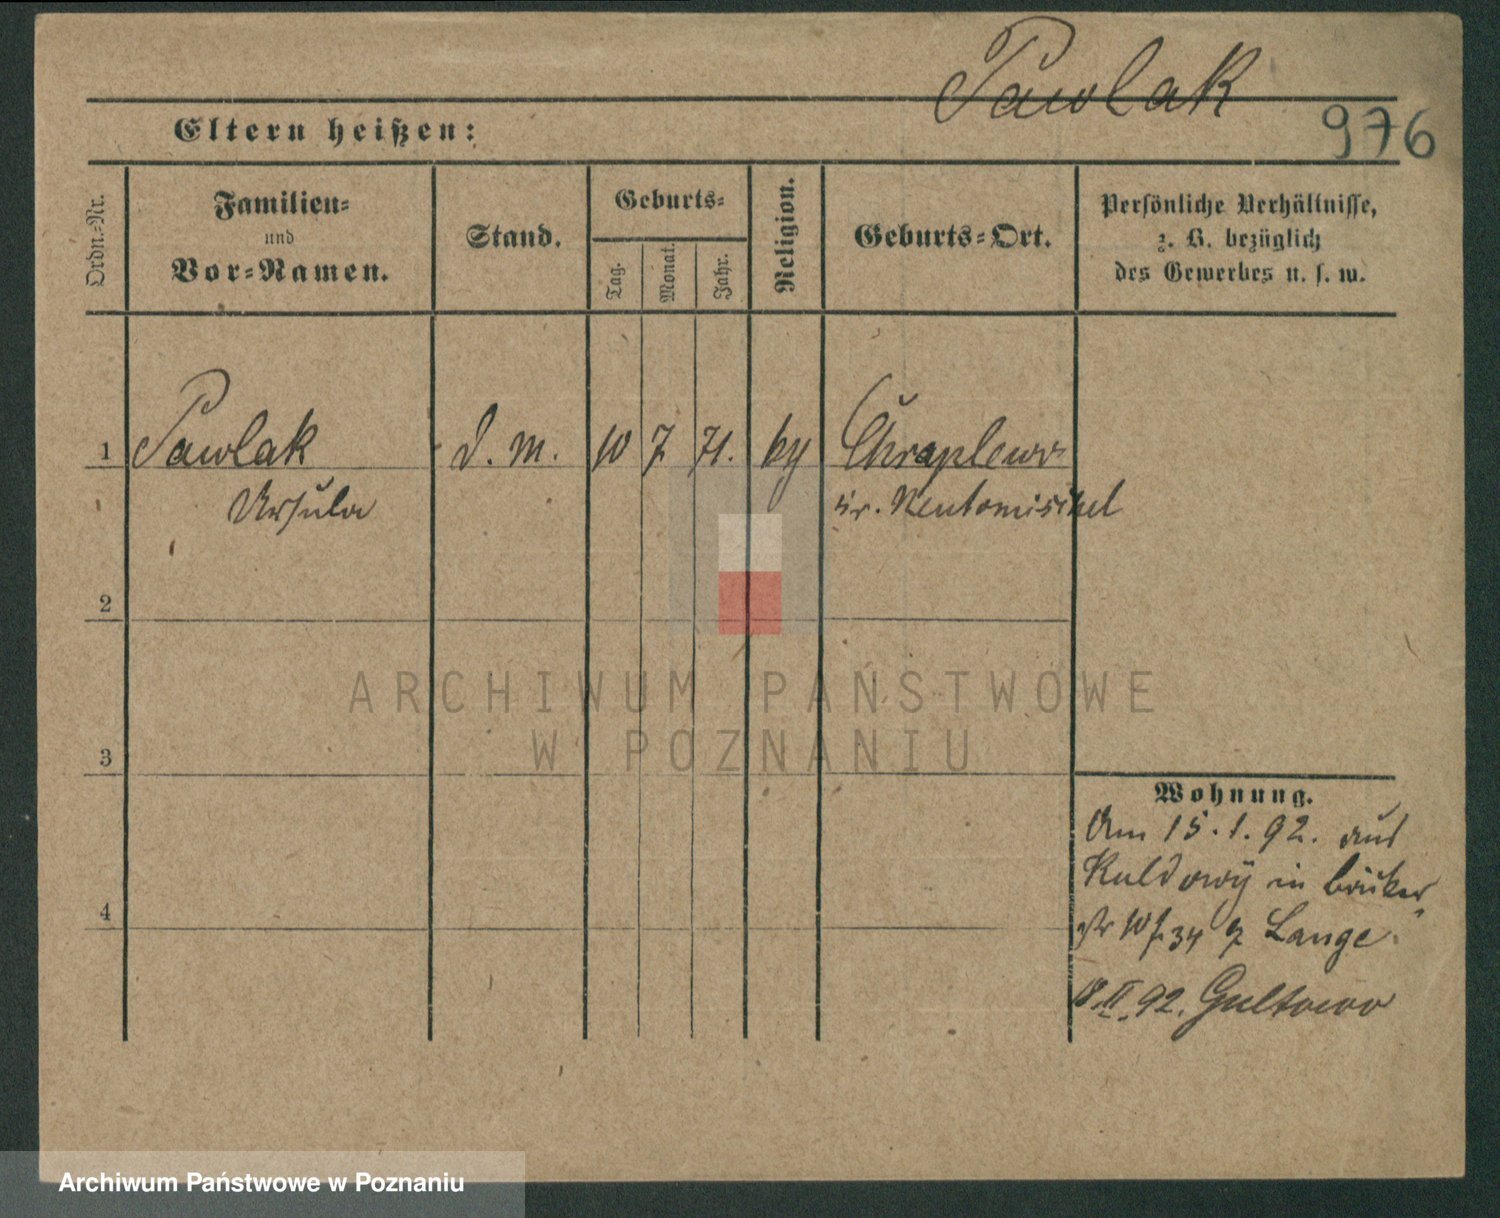 Pawlak
976
Eltern heißen:
Ordn.-Nr.
Familien-
und
Vor-Namen.
Stand.
Geburts-
Tag.
Monat.
Jahr.
Religion.
Geburts-Ort.
Persönliche Verhältnisse,
z. B. bezüglich
des Gewerbes u. s. w.
1 Pawlak d. M. 10 7 71. Chraplewo
Ursula Kr. Neutomischel
2
3
4
Wohnung.
Am 15.1.92. aus
in
str 10 34 Lange
II. 92. Gultowo
ARCHIWUM PAŃSTWOWE
W POZNANIU
Archiwum Państwowe w Poznaniu